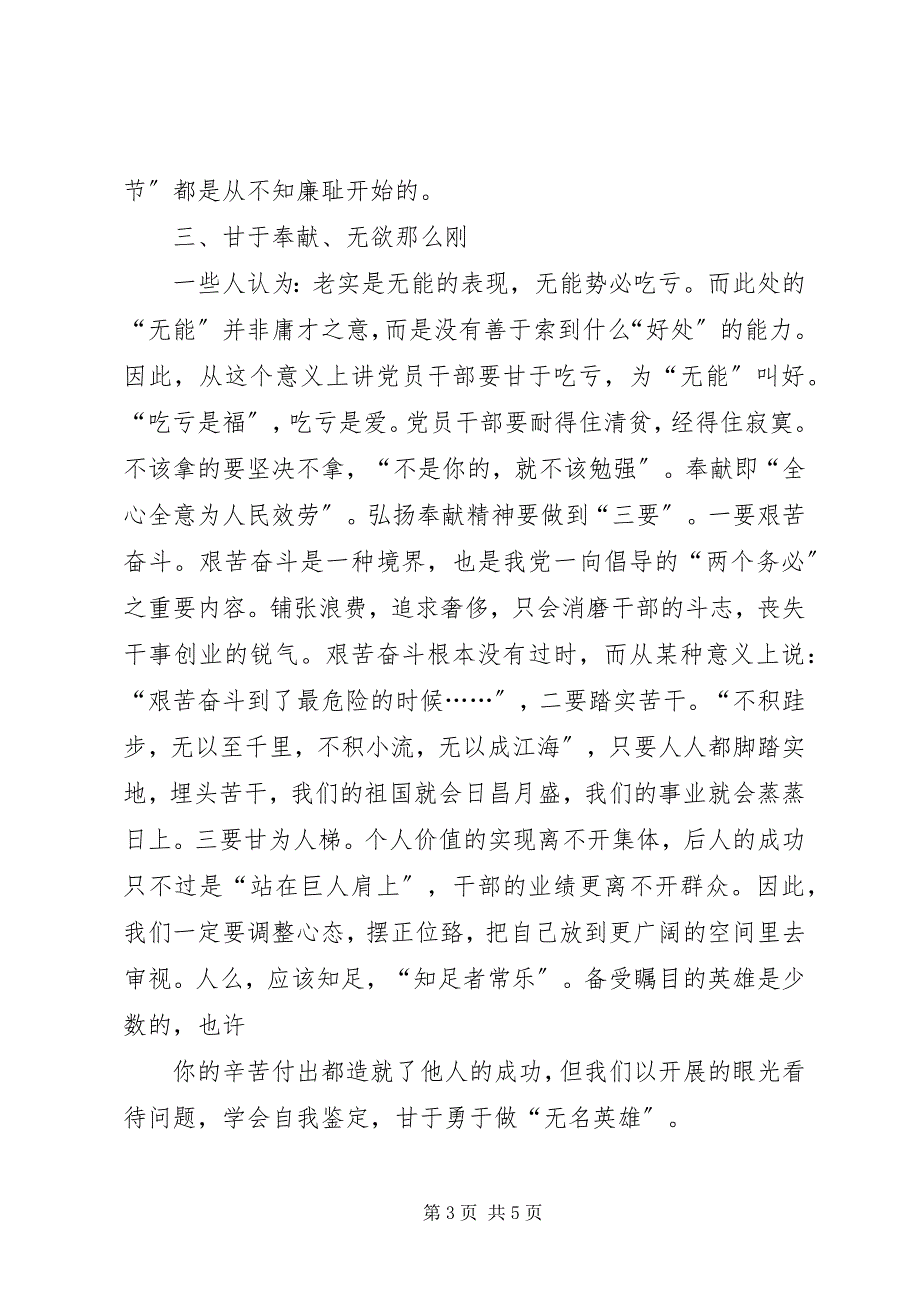 节〞都是从不知廉耻开始的。
三、甘于奉献、无欲那么刚
一些人认为：老实是无能的表现，无能势必吃亏。而此处的
“无能〞并非庸才之意，而是没有善于索到什么“好处〞的能力。
因此，从这个意义上讲党员干部要甘于吃亏，为“无能〞叫好。
“吃亏是福〞，吃亏是爱。党员干部要耐得住清贫，经得住寂寞。
不该拿的要坚决不拿，“不是你的，就不该勉强〞。奉献即“全
心全意为人民效劳〞。弘扬奉献精神要做到“三要〞。一要艰苦
奋斗。艰苦奋斗是一种境界，也是我党一向倡导的“两个务必〞
之重要内容。铺张浪费，追求奢侈，只会消磨干部的斗志，丧失
干事创业的锐气。艰苦奋斗根本没有过时，而从某种意义上说：
“艰苦奋斗到了最危险的时候……〞，二要踏实苦干。“不积跬
步，无以至千里，不积小流，无以成江海〞，只要人人都脚踏实
地，埋头苦干，我们的祖国就会日昌月盛，我们的事业就会蒸蒸
日上。三要甘为人梯。个人价值的实现离不开集体，后人的成功
只不过是“站在巨人肩上〞，干部的业绩更离不开群众。因此，
我们一定要调整心态，摆正位臵，把自己放到更广阔的空间里去
审视。人么，应该知足，“知足者常乐〞。备受瞩目的英雄是少
数的，也许
你的辛苦付出都造就了他人的成功，但我们以开展的眼光看
待问题，学会自我鉴定，甘于勇于做“无名英雄〞。
第 3 页 共 5 页